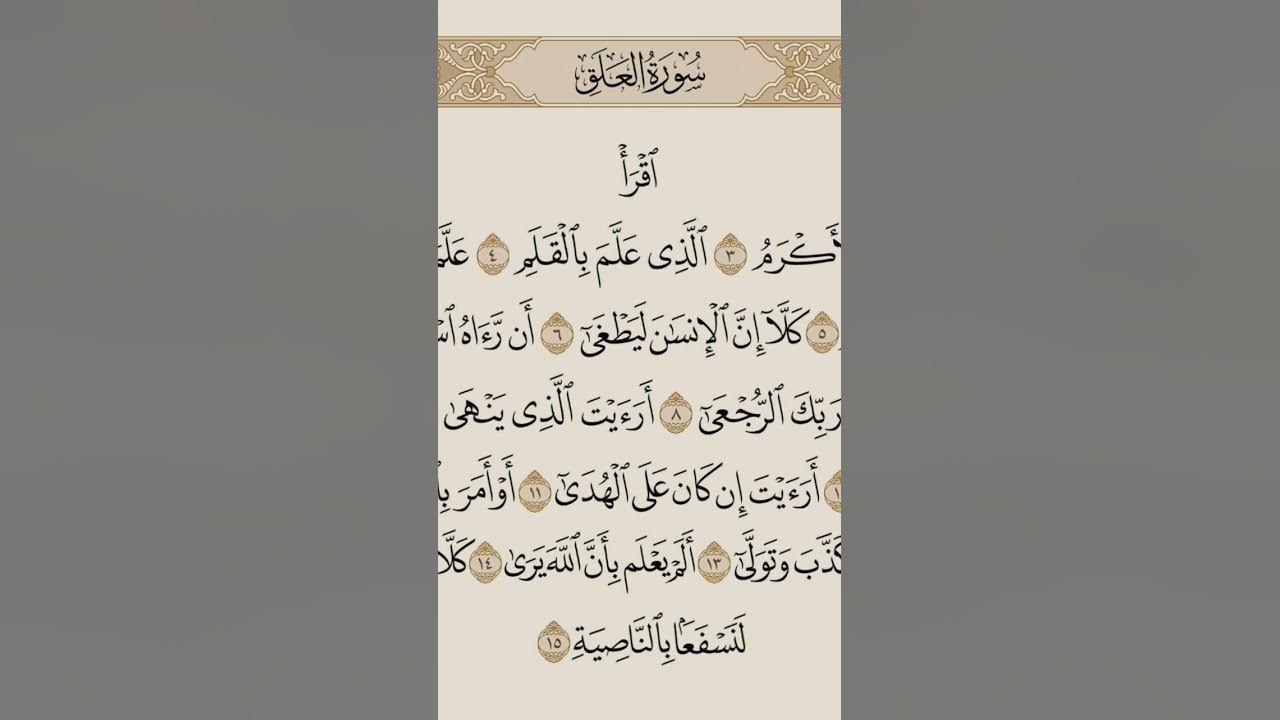 سُورَةُ العَلَقِ
ٱقْرَأْ
أَكْرَمُ ٣ ٱلَّذِى عَلَّمَ بِٱلْقَلَمِ ٤ عَلَّمَ
٥ كَلَّآ إِنَّ ٱلْإِنسَـٰنَ لَيَطْغَىٰٓ ٦ أَن رَّءَاهُ
رَبِّكَ ٱلرُّجْعَىٰٓ ٨ أَرَءَيْتَ ٱلَّذِى يَنْهَىٰ
أَرَءَيْتَ إِن كَانَ عَلَى ٱلْهُدَىٰٓ ١١ أَوْ أَمَرَ
كَذَّبَ وَتَوَلَّىٰٓ ١٣ أَلَمْ يَعْلَم بِأَنَّ ٱللَّهَ يَرَىٰ ١٤ كَلَّا
لَنَسْفَعًۢا بِٱلنَّاصِيَةِ ١٥